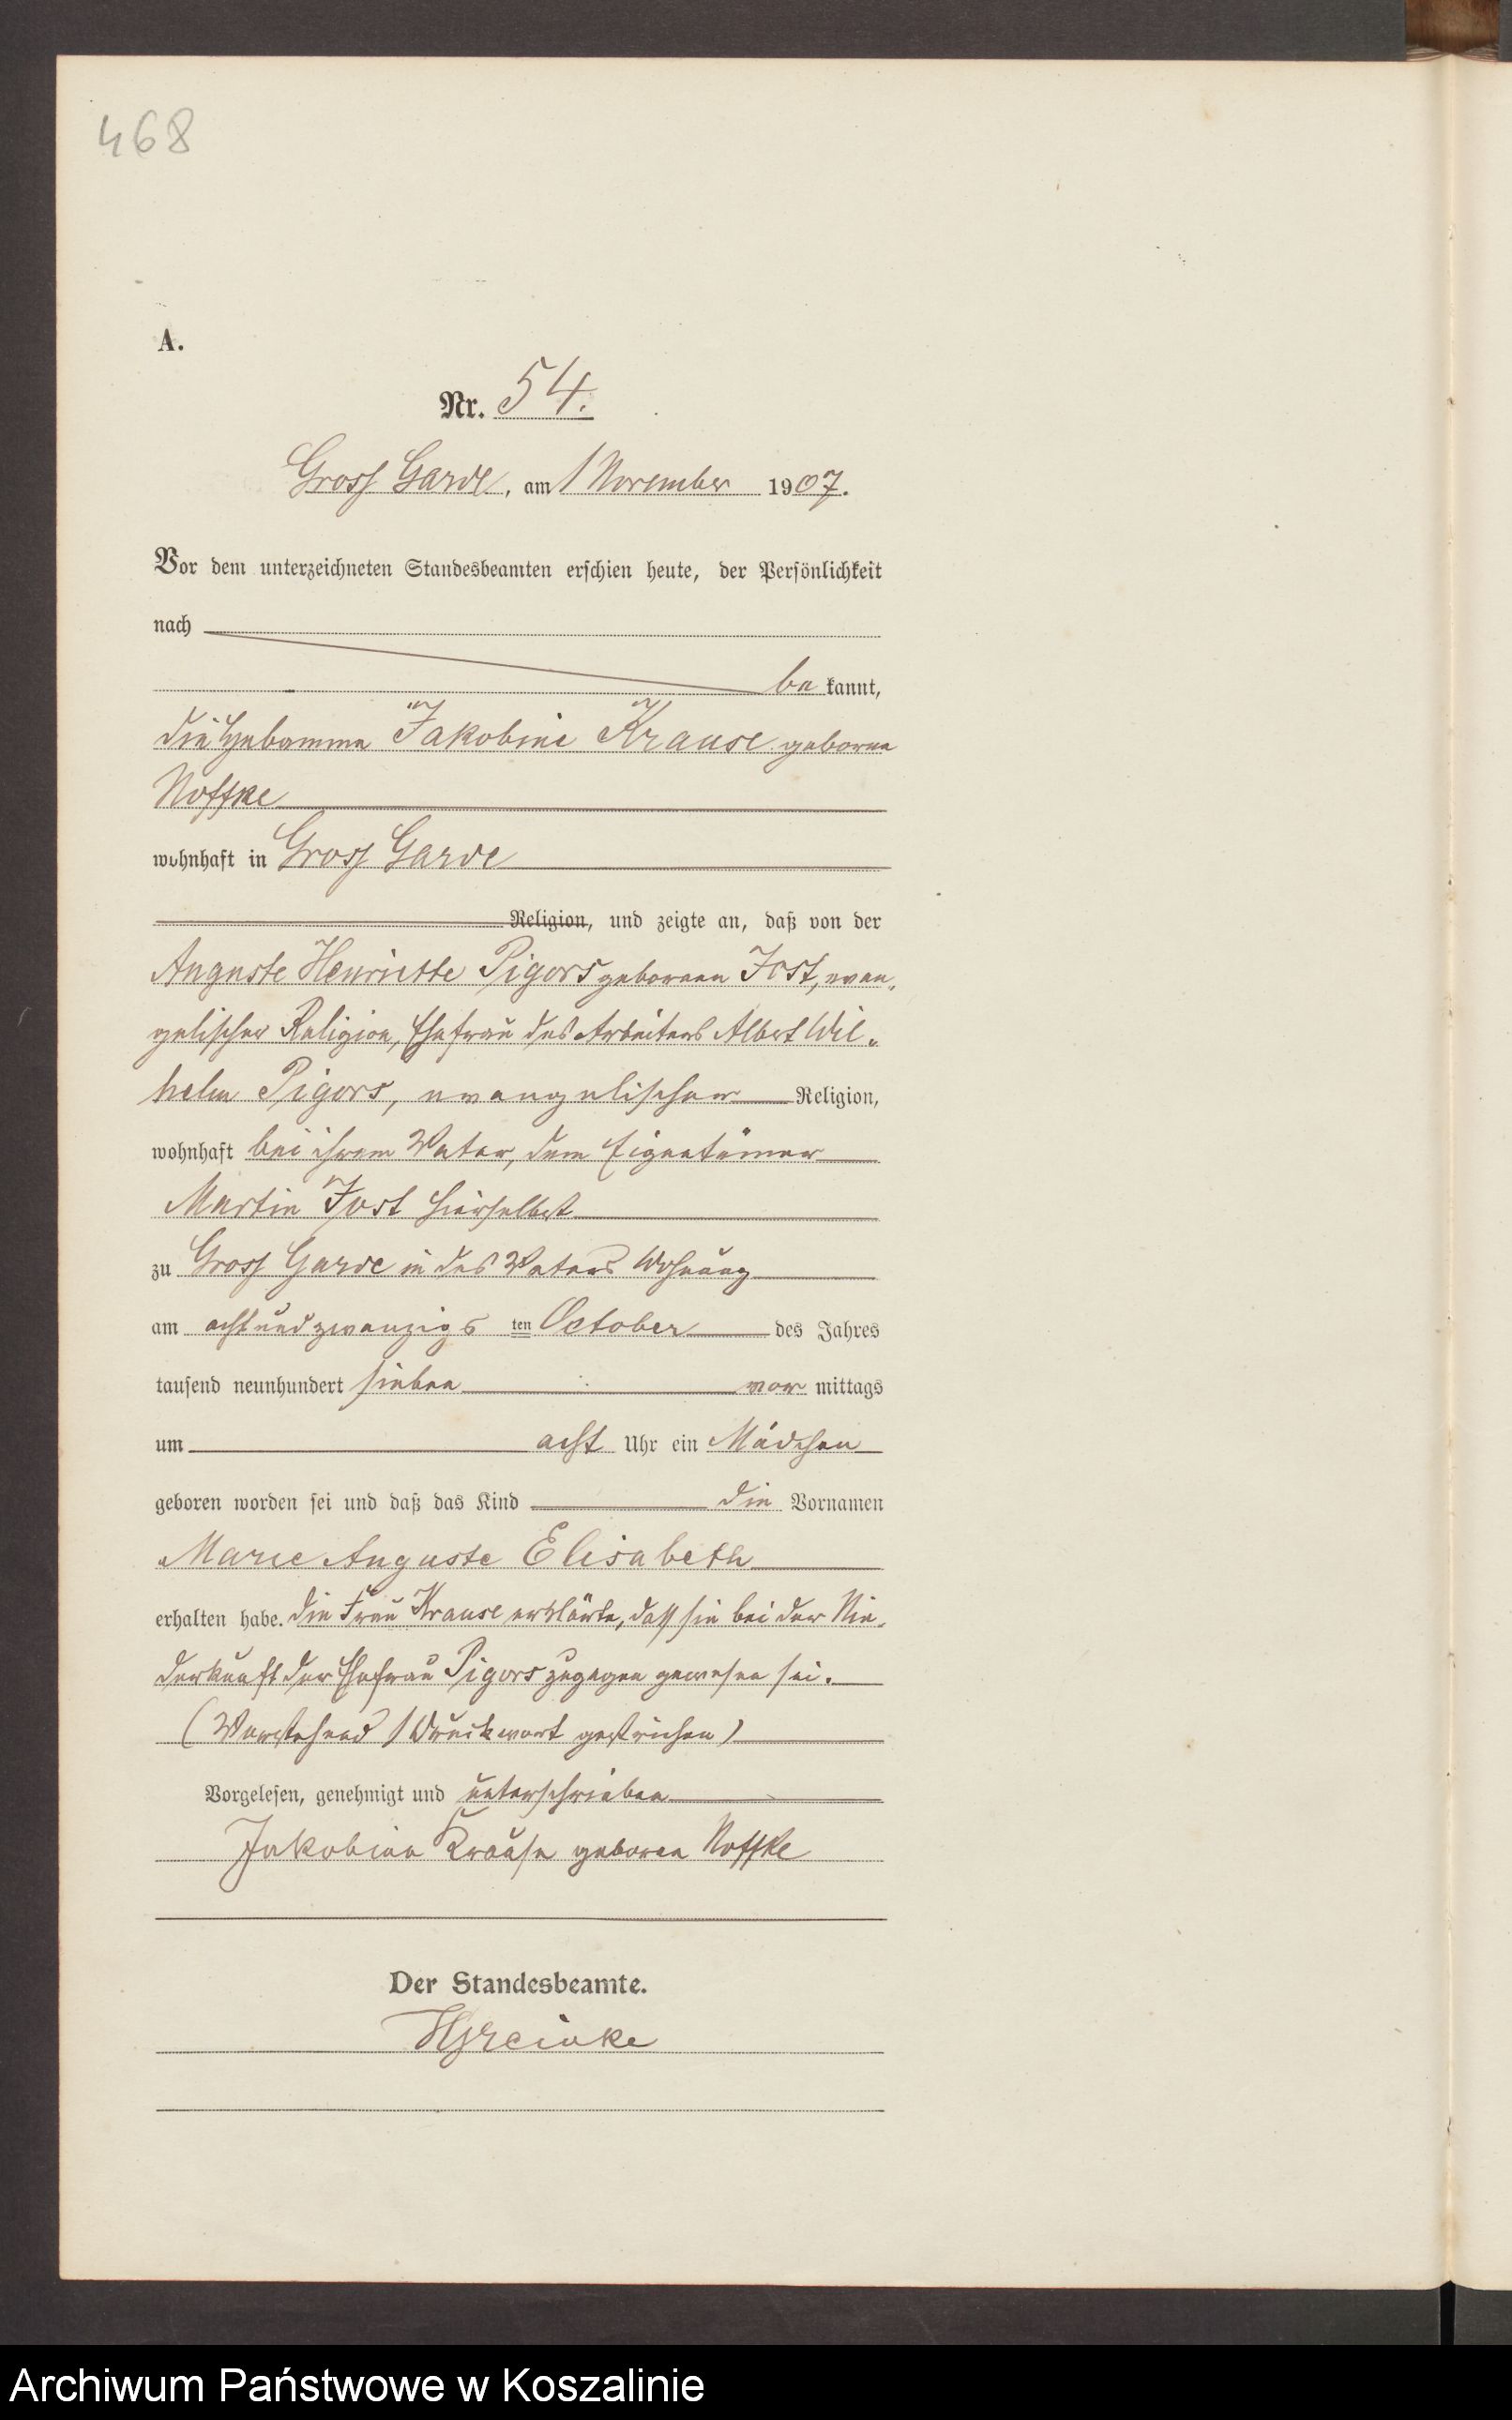 468
A.
Nr. 54.
Gross Garde, am 1 November 1907.
Vor dem unterzeichneten Standesbeamten erschien heute, der Persönlichkeit
nach
be kannt,
die Hebamme Jakobine Krause geborne
Noffke
wohnhaft in Gross Garde
Religion, und zeigte an, daß von der
Auguste Henriette Pigors geborenen Jost, evan-
gelischer Religion, Ehefrau des Arbeiters Albert Wil-
helm Pigors, evangelischer Religion,
wohnhaft bei ihrem Vater, dem Eigentümer
Martin Jost hierselbst
zu Gross Garde in des Vaters Wohnung
am achtundzwanzigs ten October des Jahres
tausend neunhundert sieben vor mittags
um acht Uhr ein Mädchen
geboren worden sei und daß das Kind die Vornamen
Marie Auguste Elisabeth
erhalten habe. Die Frau Krause erklärte, dass sie bei der Nie-
derkunft der Ehefrau Pigors zugegen gewesen sei.
(Vorstehend 1 Druckwort gestrichen)
Vorgelesen, genehmigt und unterschrieben
Jakobine Krause geboren Noffke
Der Standesbeamte.
Archiwum Państwowe w Koszalinie